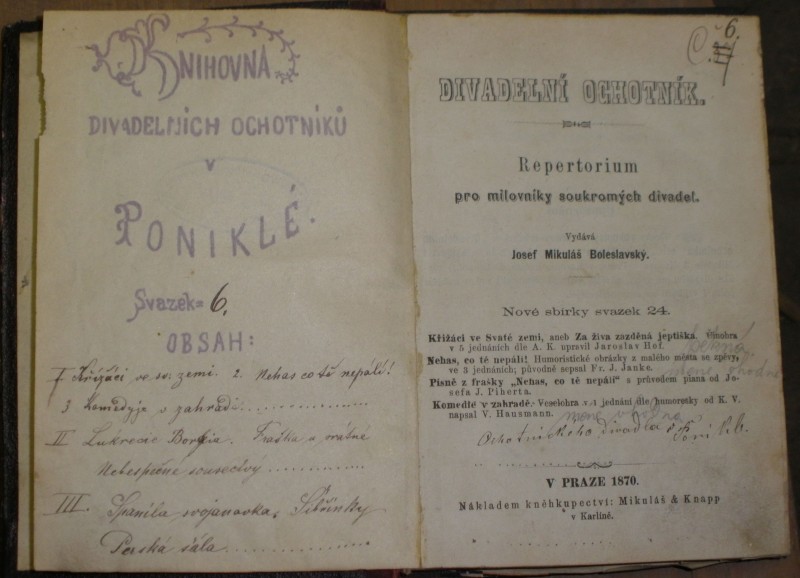 KNIHOVNA
DIVADELNÍCH OCHOTNÍKŮ
V
PONIKLÉ.
Svazek= 6.
OBSAH:
I Křižáci ve sv. zemi. 2. Nehas co tě nepálí!
3 Komedyje v zahradě
II Lukrecie Borgia. Fraška u vrátné
Nebespečné sousedství
III. Spanilá vojanovka, Šibřinky
Perská šála
Č. 6.
III
DIVADELNÍ OCHOTNÍK.
Repertorium
pro milovníky soukromých divadel.
Vydává
Josef Mikuláš Boleslavský.
Nové sbírky svazek 24.
Křižáci ve Svaté zemi, aneb Za živa zazděná jeptiška. Činohra
v 5 jednáních dle A. K. upravil Jaroslav Hof. pěkná
Nehas, co tě nepálí! Humoristické obrázky z malého města se zpěvy,
ve 3 jednáních; původně sepsal Fr. J. Janke. méně vhodné
Písně z frašky „Nehas, co tě nepálí" s průvodem piana od Jo-
sefa J. Piherta.
Komedie v zahradě. Veselohra v 1 jednání dle humoresky od K. V.
napsal V. Hausmann. méně vhodna
Ochotnického divadla v
V PRAZE 1870.
Nákladem kněhkupectví: Mikuláš & Knapp
v Karlíně.